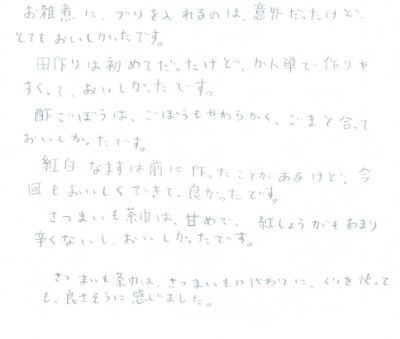 お雑煮に、ブリを入れるのは、意外だったけど、
とてもおいしかったです。
田作りは初めてだったけど、かん単で作りや
すくって、おいしかったです。
酢ごぼうは、ごぼうもやわらかく、ごまと合って
おいしかったです。
紅白なますは前に作ったことがあるけど、今
回もおいしくできて、良かったです。
さつまいも茶巾は、甘めで、紅しょうがもあまり
辛くないし、おいしかったです。
さつまいも茶巾は、さつまいもの代わりに、くりを使って
も、良さそうに感じました。